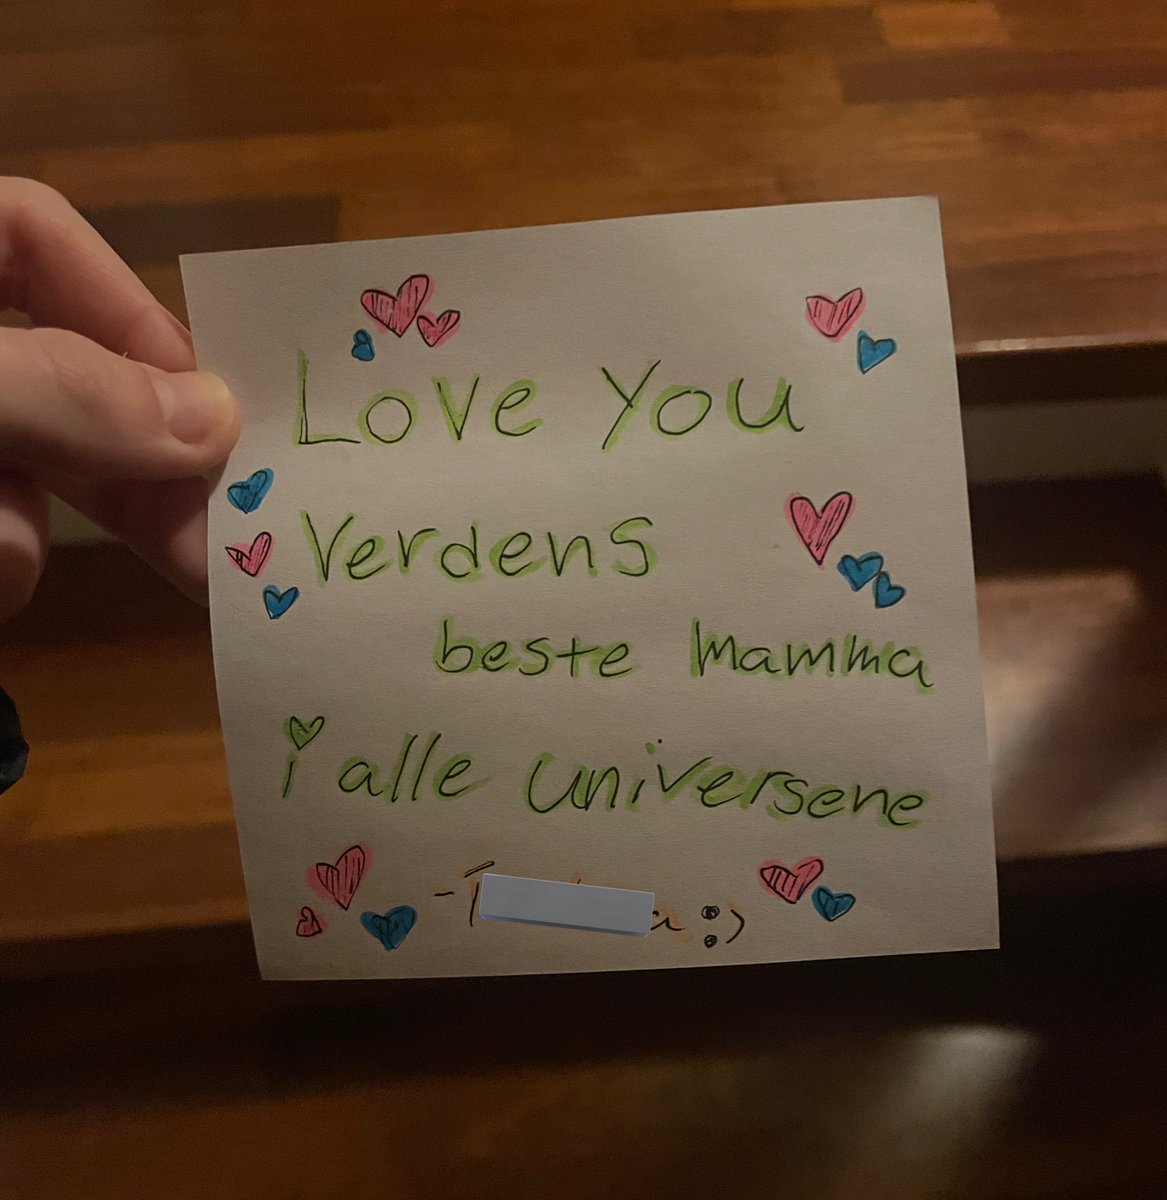 Love you
Verdens
beste mamma
i alle universene